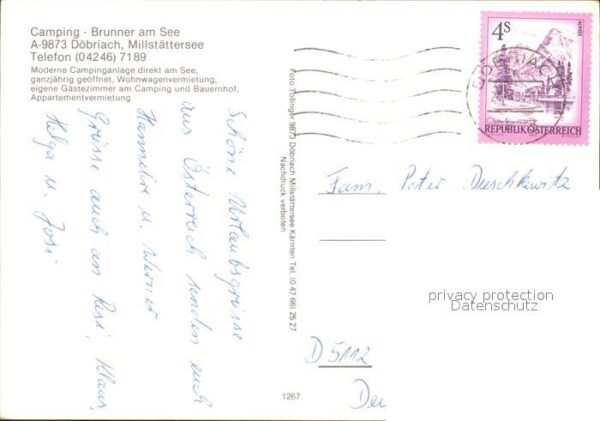 Camping · Brunner am See
A-9873 Döbriach, Millstättersee
Telefon (04246) 7189
Moderne Campinganlage direkt am See,
ganzjährig geöffnet, Wohnwagenvermietung,
eigene Gästezimmer am Camping und Bauernhof,
Appartementvermietung
Schöne Urlaubsgrüsse
aus Österreich senden euch
Hannelore u. Werner
Grüsse auch an Resi, Klaus,
Helga u. Josi
Foto Tollinger 9873 Döbriach Millstättersee Kärnten Tel. (0 47 66) 25 27
Nachdruck verboten
1267
4S
ALMSEE
REPUBLIK ÖSTERREICH
DÖBRIACH
Fam. Peter Duschkewitz
privacy protection
Datenschutz
D 5112